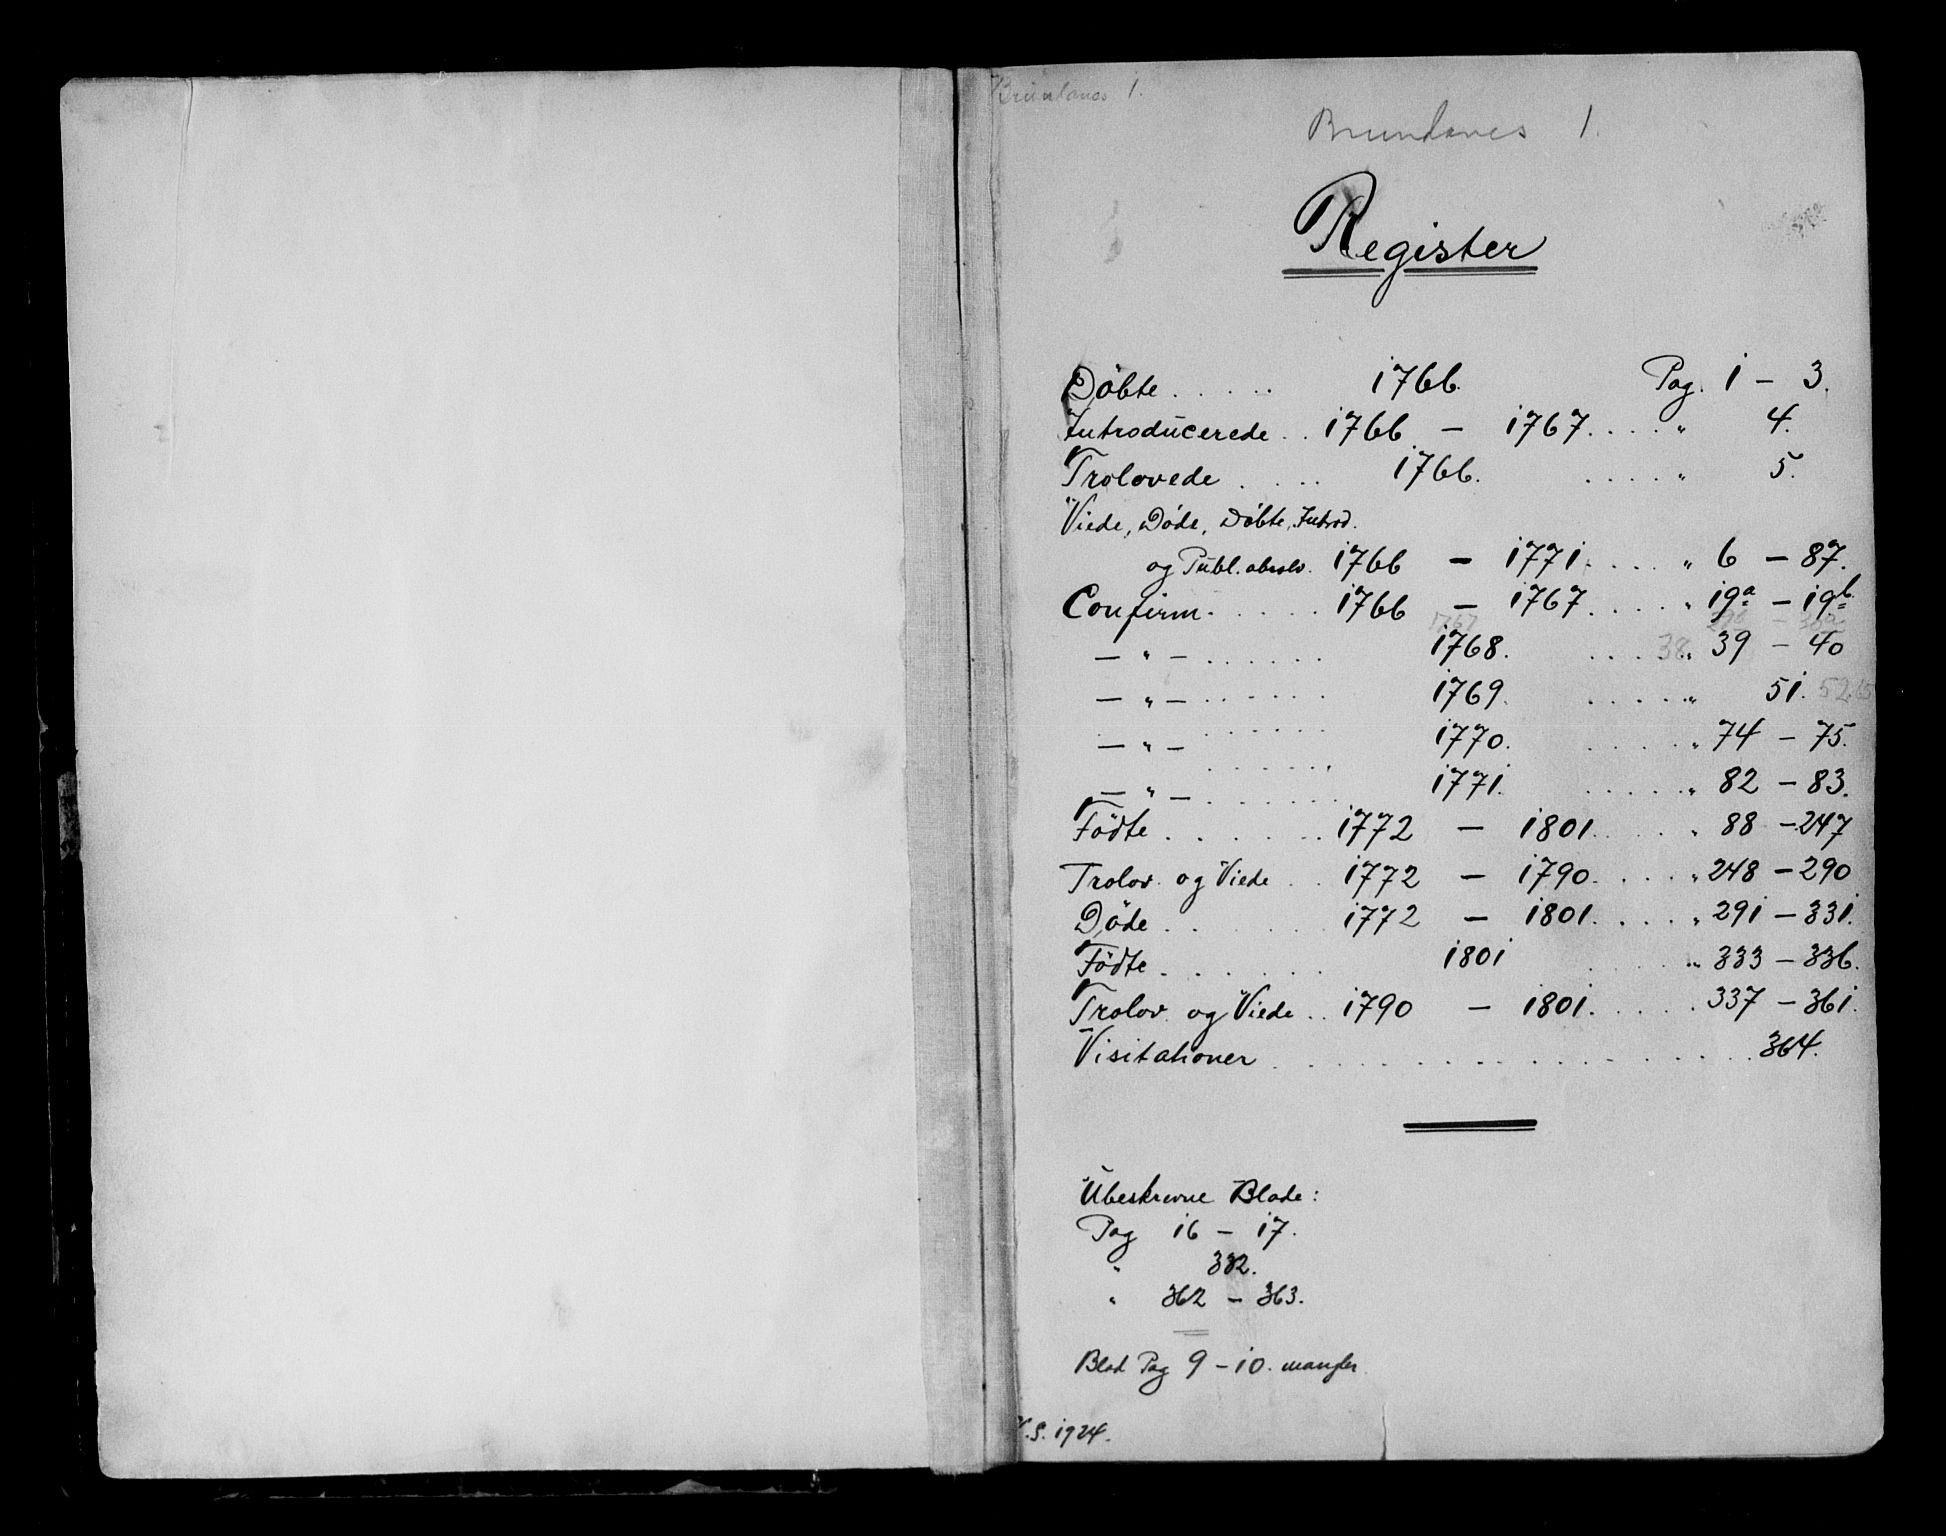 Brunlanes 1.
Brunlanes 1.
Register
Döbte . . . . . 1766. Pag. 1 - 3.
Introducerede . . 1766 - 1767. . . . " 4.
Trolovede . . . . 1766. . . . . " 5.
Viede, Döde, Döbte, Introd.
og Publ. absolv. 1766 - 1771. . . . " 6 - 87.
Confirm. . . . . 1766 - 1767. . . . " 19a - 19b
1767 29b - 30a
— " — . . . . . . 1768. . . . 38 " 39 - 40
— " — . . . . . . 1769. . . . . " 51. 52.
— " — . . . . . . 1770. . . . . " 74 - 75.
— " — . . . . . . 1771. . . . . " 82 - 83.
Födte . . . . . . 1772 - 1801. . . . " 88 - 247
Trolov. og Viede . . 1772 - 1790. . . . " 248 - 290
Döde . . . . . . 1772 - 1801. . . . " 291 - 331.
Födte . . . . . . 1801 . . . . " 333 - 336.
Trolov. og Viede . . 1790 - 1801. . . . . 337 - 361.
Visitationer . . . . . . . . . . . . 364.
Ubeskrevne Blade:
Pag 16 - 17.
" 332.
" 362 - 363.
Blad Pag 9 - 10. mangler
S. 1924.